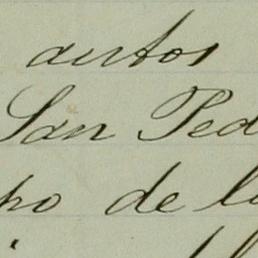 autos
San Ped
ho de la